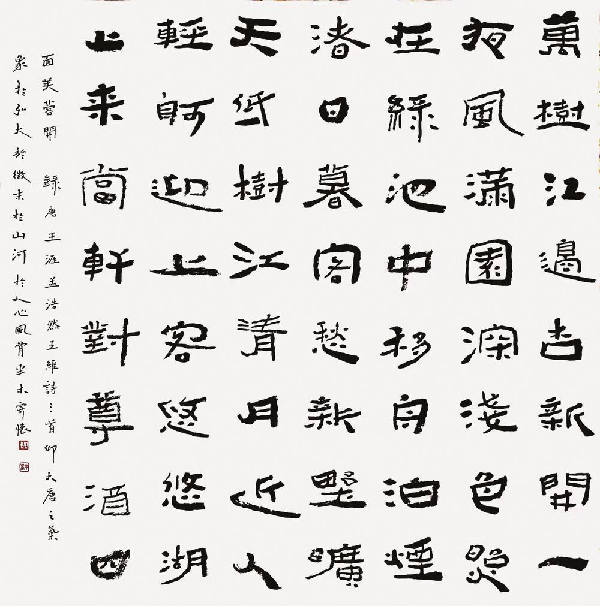 萬樹江邊杏新開一
夜風滿園深淺色照
在綠池中移舟泊煙
渚日暮客愁新野曠
天低樹江清月近人
輕舸迎上客悠悠湖
上來當軒對尊酒四
面芙蓉開 錄唐王涯孟浩然王維詩三首仰大唐之氣
象於弘大於微末於山河於人心風骨